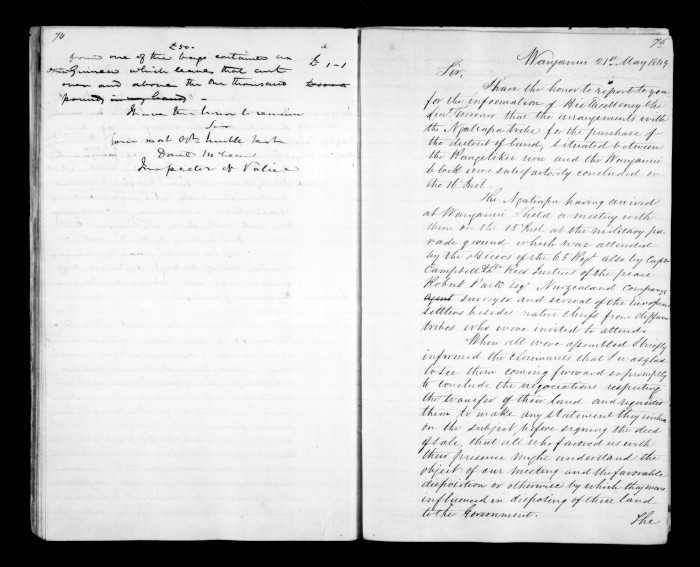 74
£50.
found one of the bags contained an
Guinea which leaves that amt
over and above the One thousand
pounds in my hand -
I have the honor to remain
Sir
Your most Obt humble Servt
Donal McLean
Inspector of Police
£ 1-1
75
Wanganui 21st May 1849
Sir,
I have the honor to report to you
for the information of His Excellency the
Lieut Governor that the arrangements with
the Ngatiapa tribe for the purchase of
the district of land, situated between
the Rangitikei run and the Wanganui
block were satisfactorily concluded on
the 16 Inst.
The Ngatiapa having arrived
at Wanganui I held a meeting with
them on the 15 Inst. at the military pa-
rade ground which was attended
by the Officers of the 65 Regt also by Capt
Campbell & Dr Rees Justices of the peace
Robert Park Esq Newzealand Companys
agent surveyor and several of the European
settlers besides native chiefs from different
tribes who were invited to attend.
When all were assembled I briefly
informed the Claimants that I was glad
to see them coming forward so promptly
to conclude the negociations respecting
the transfer of their land and requested
them to make any statement they wished
on the subject, before signing the deed
of sale, that all who favored us with
their presence might understand the
object of our meeting and the favorable
disposition or otherwise by which they were
influenced in disposing of their land
to the Government.
The